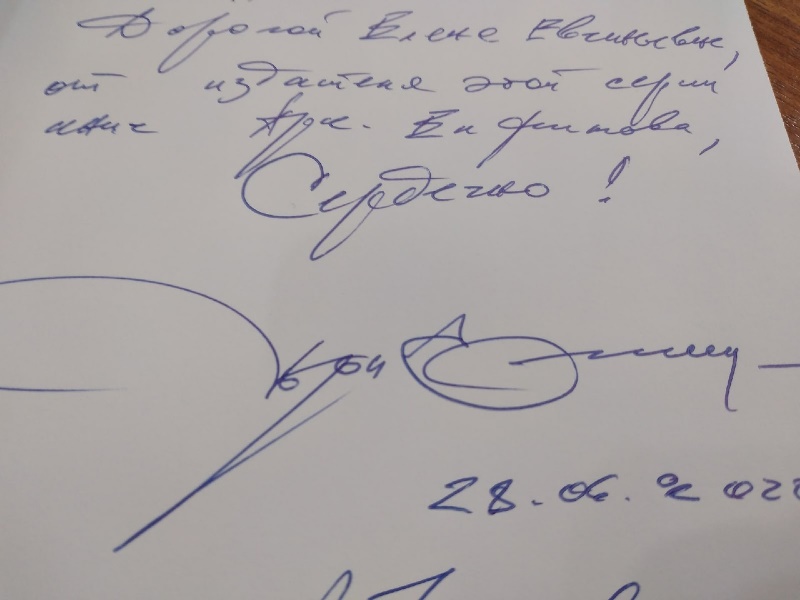 Дорогой Елене Евгеньевне,
от издателя этой серии
книг Арк. Елфимова,
Сердечно !
28.06.2022